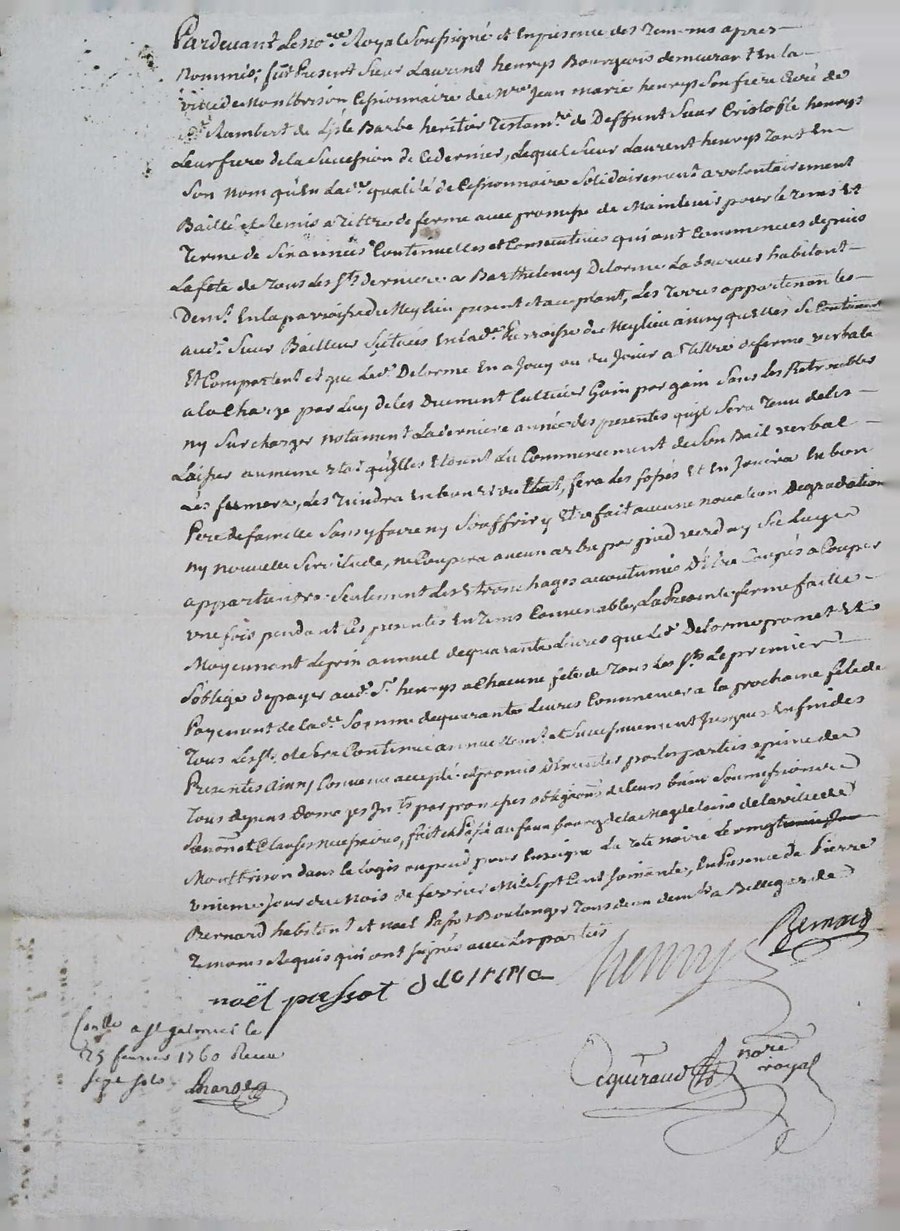 Pardevant Le no.re Royal Soussigné et En presence des Temoins apres
nommés, fut Present Sieur Laurent henrys Bourgeois demeurant En la
ville de Montbrison Cessionnaire de M.re Jean marie henrys Son frere Curé de
S.t Rambert de L'isle Barbe heritier Testam.re de Deffunt Sieur Cristofle henrys
Leur frere de la Succession de Ce dernier, Lequel Sieur Laurent henrys Tant En
Son nom qu'En Lad.e qualité de Cessionnaire Solidairement a volontairement
Baillé et Remis a Tittre de ferme avec promesse de Maintenir pour le Tems Et
Terme de Six années Continuelles et Consecutives qui ont Commencées depuis
La fete de Tous Les S.ts derniere a Barthelemy Delorme Laboureur habitant
Dem.t En la parroisse de Meylieu present et acceptant, Les Terres appartenantes
aud.t Sieur Bailleur Scituées En lad.e Parroisse de Meylieu ainsy qu'elles Se Contienent
Et Comportent et que Led.t Delorme En a Jouy ou du Jouir a Tittre de ferme verbale
a la Charge par Luy de les Duement Cultiver Gain par gain Sans Les Retroubler
ny Surcharger notament La derniere année des presentes qu'il Sera Tenu de les
Laisser au meme Etat qu'elles Etoient Au Commencement de Son Bail verbal
Les fermera, Les Tiendra En bon Etat, fera Les fossés Et En Jouira En bon
Pere de famille Sans y faire ny Souffrir y Etre fait aucune novation Degradation
ny nouvelle Servitude, ne Coupera aucun arbre par pied verd ny Sec Luy
appartiendra Seulement Les Etronchages accoutumés D'Etre Coupés a Couper
une fois pendant Ces presentes En Tems Convenable, La Presente ferme faitte
Moyennant Le prix annuel de quarante Livres que Led.t Delorme promet Et
S'oblige de payer aud.t S.r henrys a Chacune fete de Tous Les S.ts Le premier
Payement de lad.e Somme de quarante Livres Commencer a la prochaine fete de
Tous Les S.ts et Etre Continué annuellem.t et Successivement Jusques En fin des
Presentes Ainsy Convenu accepté et promis D'Executer par les parties a peine de
Tous depens Domages Int.ts par promesses obligeons de leurs biens Soumissions
Renon.on et Clauses necessaires, fait et Passé au faux bourg de la Magdelaine de la ville de
Montbrison dans le Logis ou pend pour Enseigne La Tete noire Le vingt
unieme Jour du Mois de fevrier Mil Sept Cent Soixante, En Presence de Pierre
Bernard habitant et noël Passot Boulanger Tous deux dem.ts a Bellegarde
Temoins Requis qui ont Signés avec Les parties
noël passot Delorme henrys Bernard
Conllé a St galmier le
25 fevrier 1760 Recu
sept sols
Cequiraud
no.re
royal